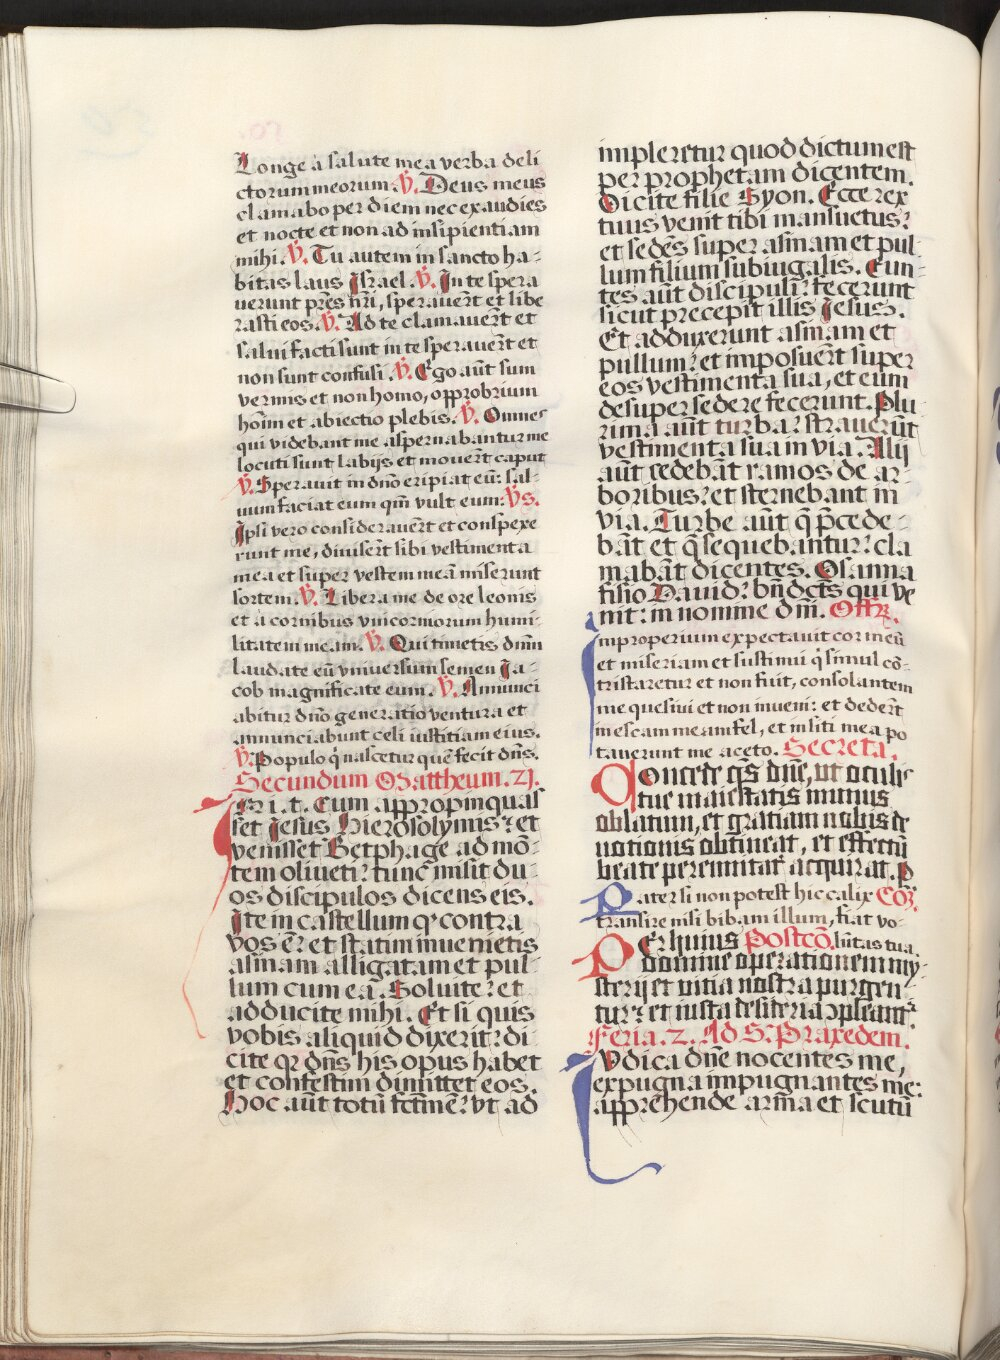 Longe a salute mea verba deli
ctorum meorum. V̄. Deus meus
clamabo per diem nec exaudies
et nocte et non ad insipientiam
mihi. V̄. Tu autem in sancto ha-
bitas laus Israel. V̄. In te spera
uerunt prēs nr̄i, sperauer̄t et libe
rasti eos. V̄. Ad te clamauer̄t et
salui facti sunt in te sperauer̄t et
non sunt confusi. V̄. Ego aūt sum
vermis et non homo, opprobrium
hoīm et abiectio plebis. V̄. Omnes
qui videbant me aspernabantur me
locuti sunt labijs et mouer̄t caput
V̄. Sperauit in dn̄o eripiat eū: sal-
uum faciat eum qm̄ vult eum: Vs.
Ipsi vero considerauer̄t et conspexe
runt me, diuiser̄t sibi vestimenta
mea et super vestem meā miserunt
sortem. V̄. Libera me de ore leonis
et a cornibus vnicornorum humi-
litatem meam. V̄. Qui timetis dn̄m
laudate eū vniuersum semen Ja-
cob magnificate eum. V̄. Annunci
abitur dn̄o generatio ventura et
annunciabunt celi iustitiam eius.
V̄. Populo q̄ nascetur quē fecit dn̄s.
Secundum Mattheum. 21.
In i. t. Cum appropinquas
set Jesus Hierosolymis: et
venisset Betphage ad mō-
tem oliueti: tunc misit du-
os discipulos dicens eis.
Ite in castellum qď contra
vos ē: et statim inuenietis
asinam alligatam et pul-
lum cum ea. Soluite: et
adducite mihi. Et si quis
vobis aliquid dixerit: di-
cite qr̄ dn̄s his opus habet
et confestim dimittet eos.
Hoc aūt totū fc̄tm ē: vt ad
impleretur quod dictum est
per prophetam dicentem.
Dicite filie Syon. Ecce rex
tuus venit tibi mansuetus:
et sedēs super asinam et pul-
lum filium subiugalis. Eun-
tes aūt discipuli: fecerunt
sicut precepit illis Jesus.
Et adduxerunt asinam et
pullum: et imposuer̄t super
eos vestimenta sua, et eum
desuper sedere fecerunt. Plu-
rima aūt turba: strauerūt
vestimenta sua in via. Alij
aūt cedebāt ramos de ar-
boribus: et sternebant in
via. Turbe aūt q̄ p̄cede-
bāt et q̄ sequebantur: cla
mabāt dicentes. Osanna
filio Dauid: bn̄dcts qui ve
nit: in nomine dn̄i. Offr̄.
Improperium expectauit cor meū
et miseriam et sustinui q̄ simul cō-
tristaretur et non fuit, consolantem
me quesiui et non inueni: et deder̄t
in escam meam fel, et in siti mea po
tauerunt me aceto. Secreta.
Concede qs̄ dn̄e, ut oculis
tue maiestatis munus
oblatum, et gratiam nobis de
uotionis obtineat, et effectū
beate perennitat̄ acquirat. P
Pater si non potest hic calix Cōz.
transire nisi bibam illum, fiat vo-
Per huius Postcō. lūtas tua.
domine operationem my-
sterij et vitia nostra purgen
tur: et iusta desideria ɔpleant̄.
Feria. 2. Ad S. Praxedem.
Iudica dn̄e nocentes me,
expugna impugnantes me:
apprehende arma et scutū